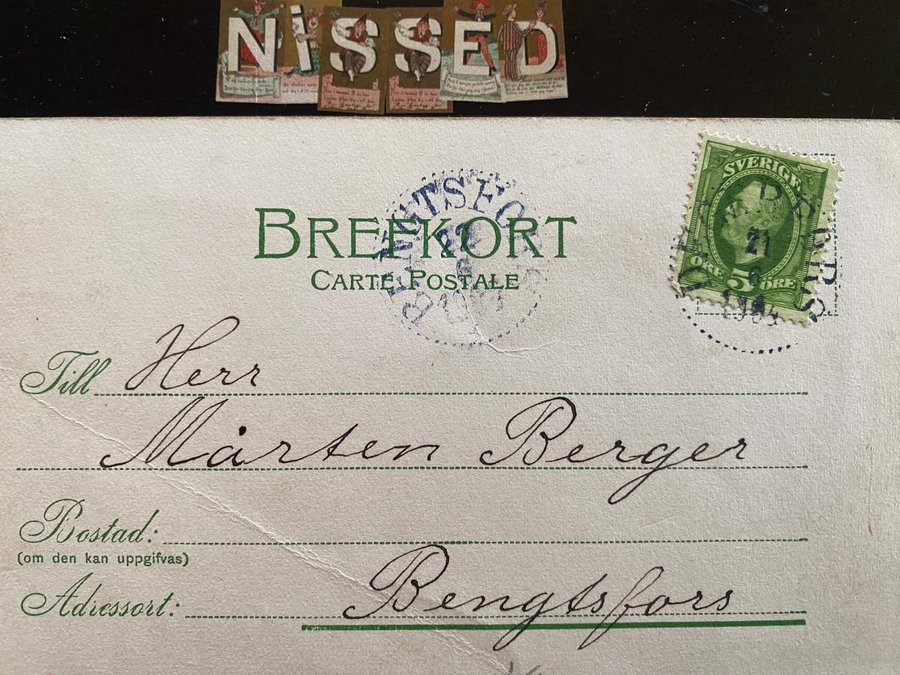 NiSSED
BREFKORT
CARTE POSTALE
BENGTSFO
22
6
SVERIGE
ÖRE 5 ÖRE
21
6
1904
Till Herr
Mårten Berger
Bostad:
(om den kan uppgifvas)
Adressort: Bengtsfors